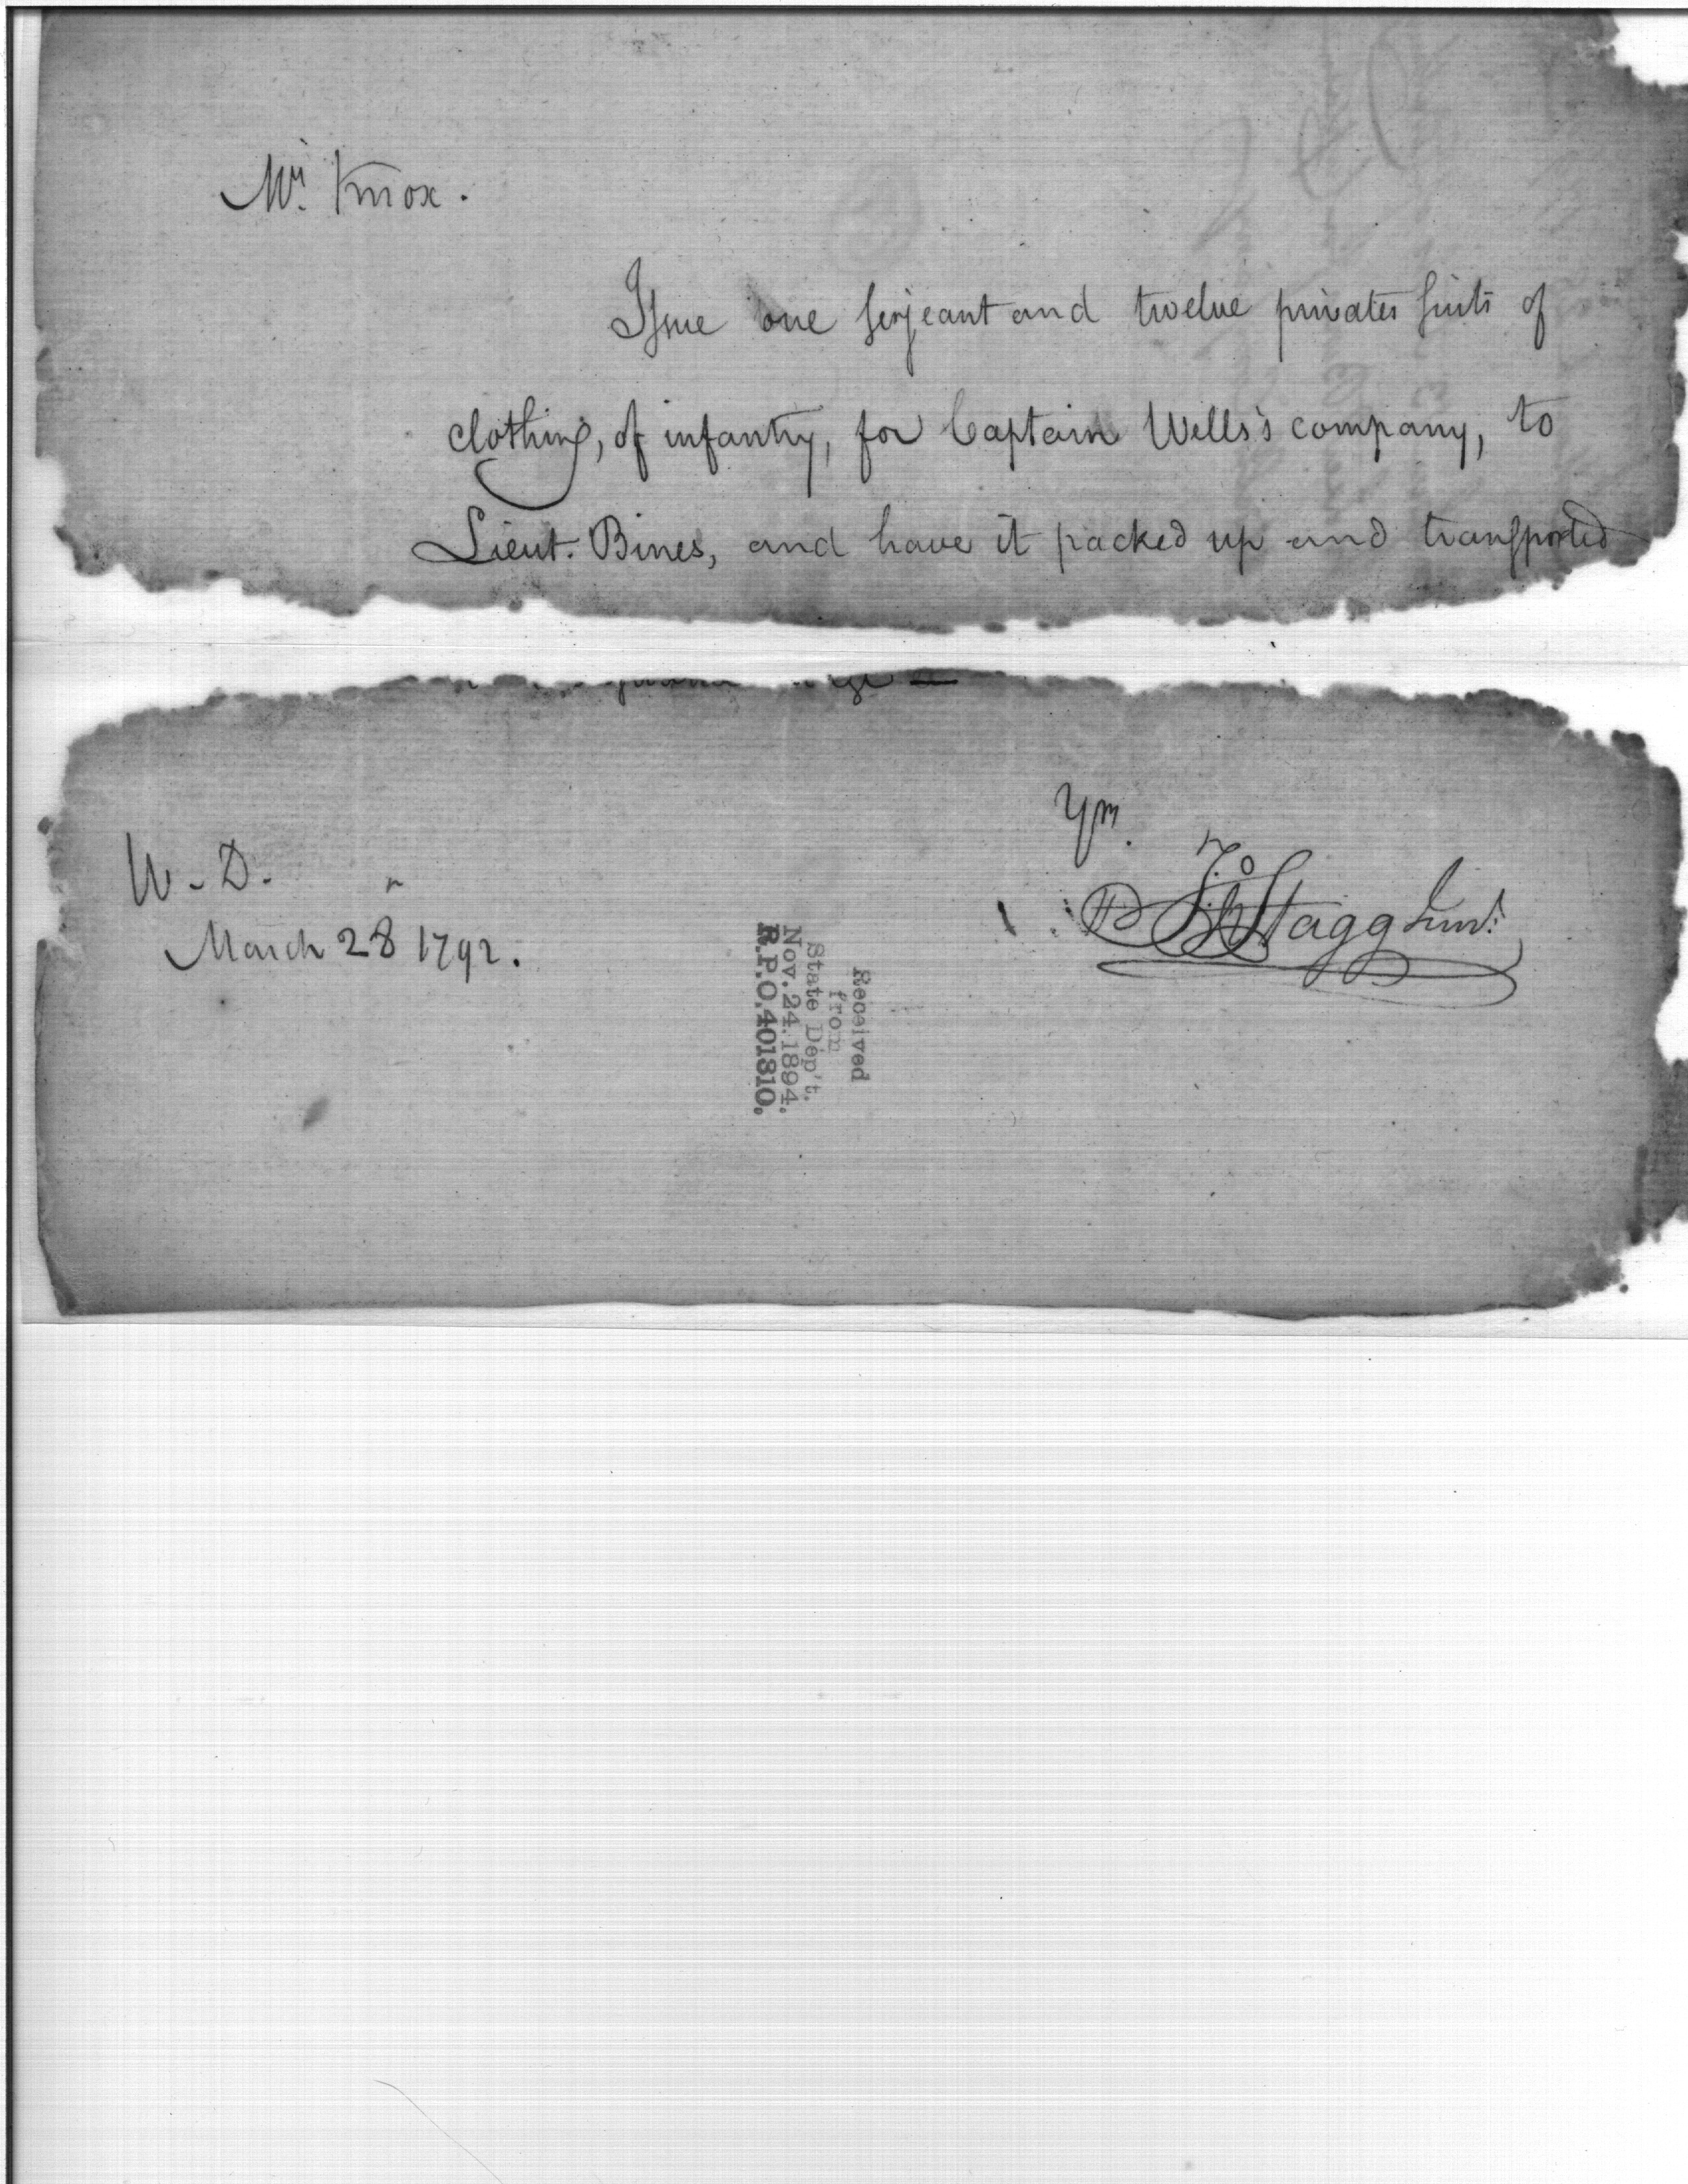 Mr. Knox.
Issue one serjeant and twelve privates suits of
clothing, of infantry, for Captain Wells's company, to
Lieut. Bines, and have it packed up and transported
W. D.
March 28 1792.
Jno Stagg Junr.
Received
from
State Dep't.
Nov. 24. 1894.
R.P.O. 401810.